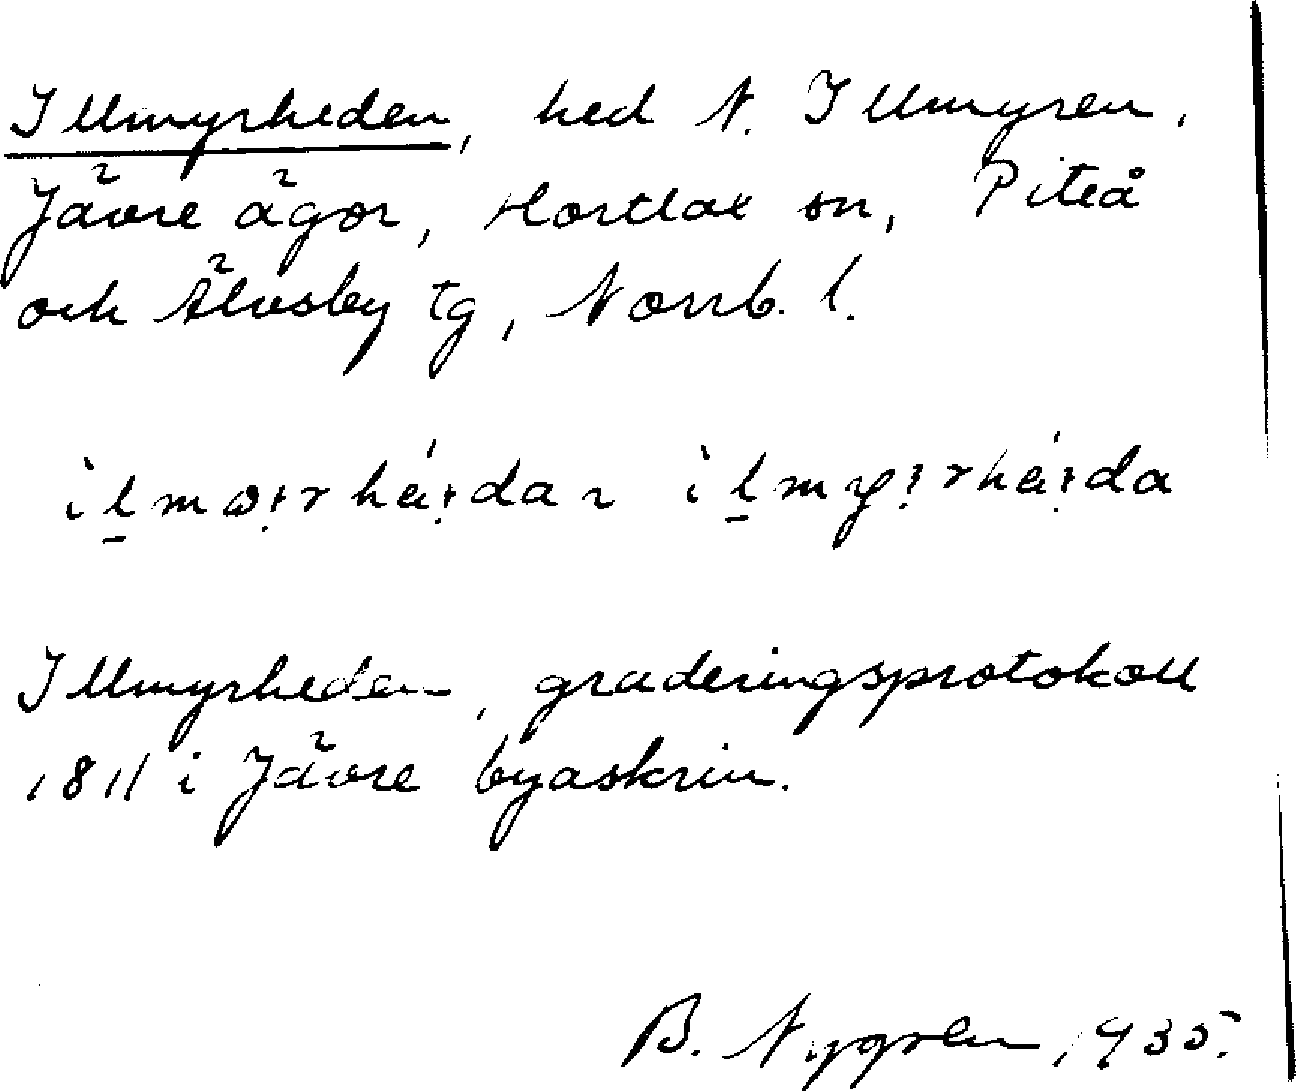 Illmyrheden, hed N. Illmyren,
Jävre ägor, Hortlax sn, Piteå
och Älvsby tg, Norrb. l.
Illmyrheden, graderingsprotokoll
1811 i Jävre byaskrin.
B. Nygren, 1935.